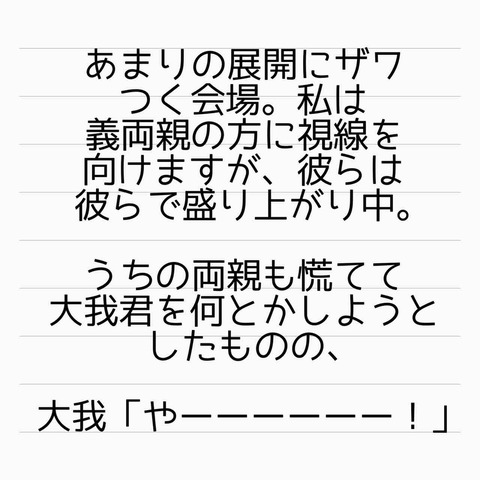 あまりの展開にザワ
つく会場。私は
義両親の方に視線を
向けますが、彼らは
彼らで盛り上がり中。
うちの両親も慌てて
大我君を何とかしようと
したものの、
大我「やーーーーーー！」